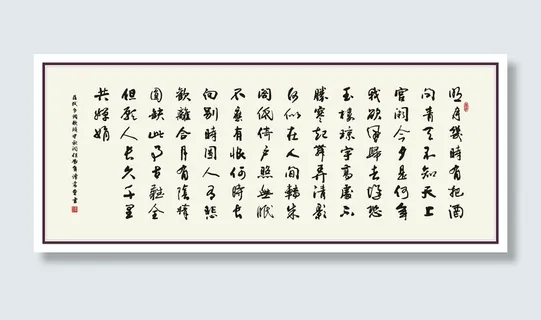 明月幾時有把酒
问青天不知天上
宫阙今夕是何年
我欲乘風歸去又恐
玉樓瓊宇高處不
勝寒起舞弄清影
何似在人間轉朱
閣低綺户照無眠
不應有恨何時長
向别時圓人有悲
歡離合月有陰晴
圓缺此事古難全
但願人長久千里
共嬋娟